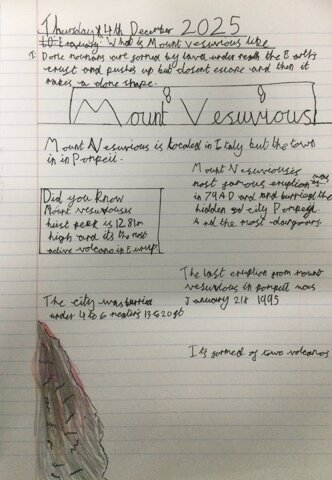 Thursday 4th December 2025
LO Enquiry: What is Mount Vesuvious like
1: Dome volcanos are formed by lava under neath the Earth's
crust and pushes up but dosent escape and then it
makes a dome shape.
Mount Vesuvious
Mount Vesuvious is located in Italy but the town
in in Pompeii.
Mount Vesuviouses
most famous eruption was
in 79AD and and burried the
hidden city Pompeii
And the most dangours
Did you know
Mount vesuviouses
hiest peek is 1281m
high and its the most
active volcano in Europ
The last eruption from mount
vesuvious in pompeii was
January 21st 1995
The city was burried
under 4 to 6 meaters 13 to 20 ft
Its formed of two volcanos